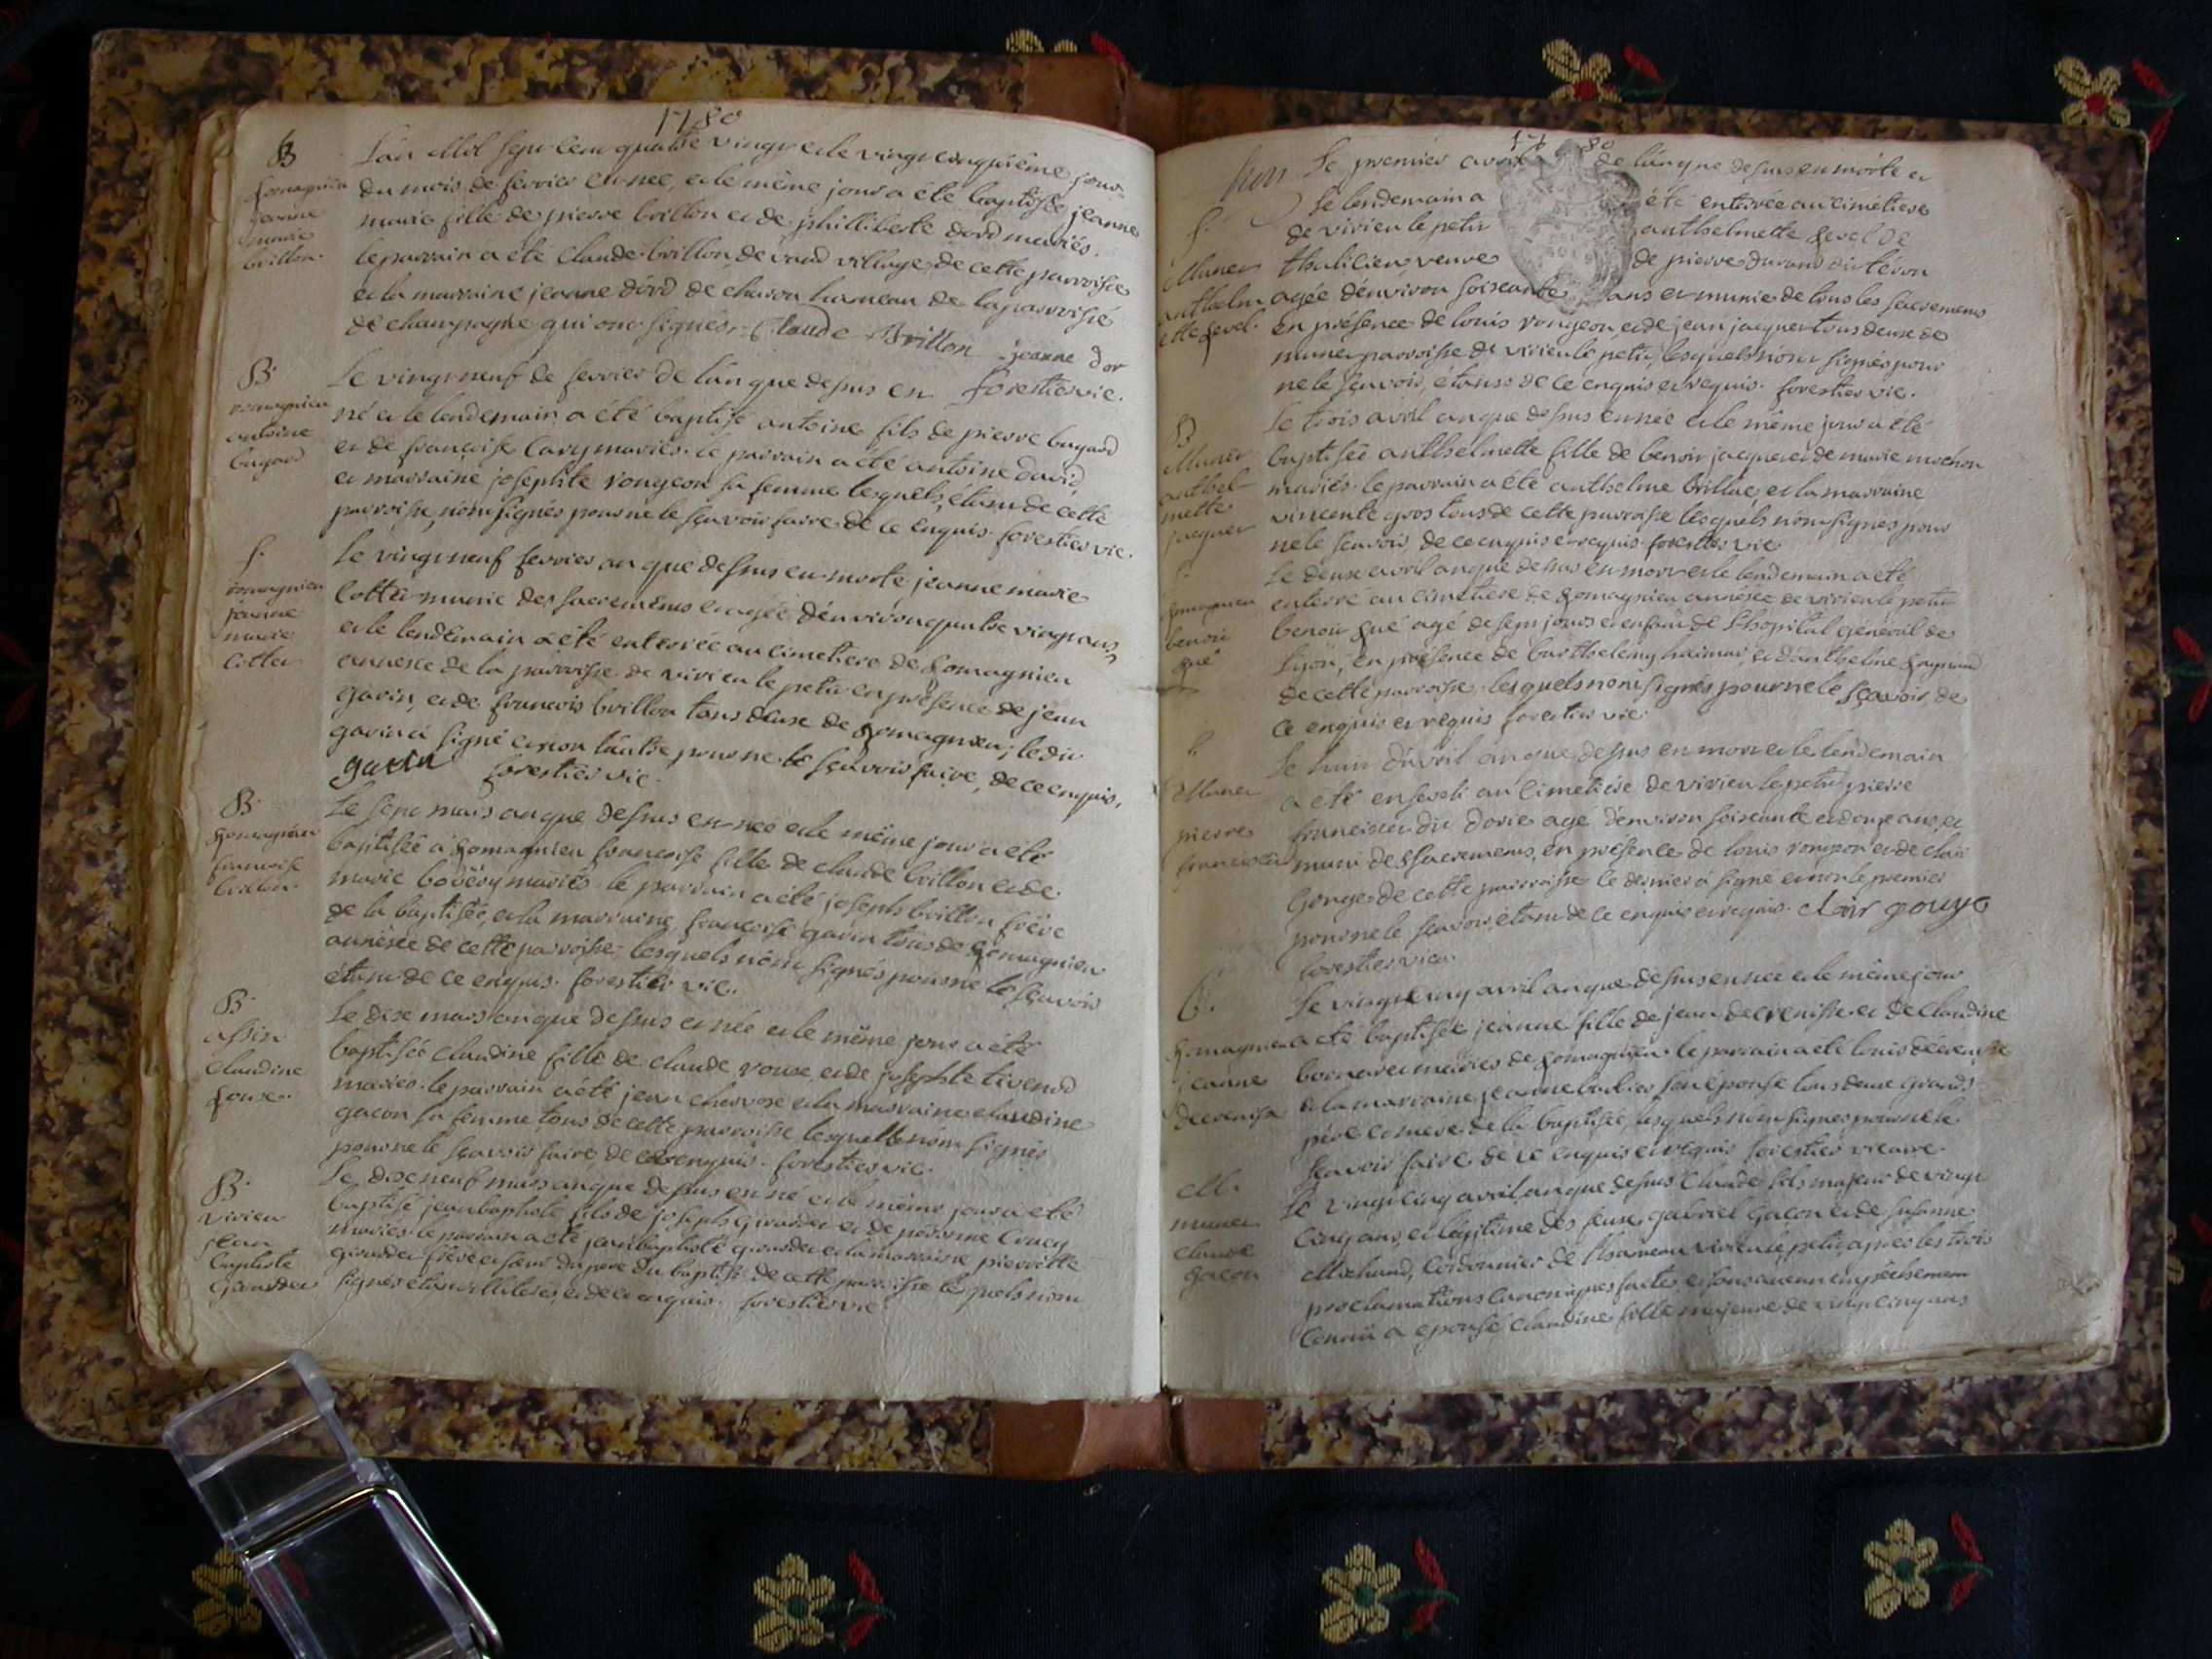 1780
B
Romagnieu
jeanne
marie
brillon.
L'an Mil sept cent quatre vingt et le vingt cinquième jour
du mois de fevrier est née, et le même jour a été baptisée jeanne
marie fille de pierre brillon et de philliberte dord mariés.
le parrain a été Claude brillon de vaud village de cette parroisse
et la marraine jeanne dord de hameau de la parroisse
de champagne qui ont signés. Claude Brillon jeanne dor
forestier vic.
B.
romagnieu
antoine
bugard
Le vingt neuf de fevrier de l'an que dessus est
né et le lendemain a été baptisé antoine fils de pierre bugard
et de francoise Cary mariés. le parrain a été antoine david
et marraine josephte rongeon sa femme lesquels étant de cette
parroisse, n'ont signés pour ne le sçavoir faire de ce enquis. forestier vic.
f.
romagnieu
jeanne
marie
cottin
Le vingt neuf fevrier an que dessus est morte jeanne marie
munie des sacremens et agée d'environ quatre vingt ans,
et le lendemain a été enterrée au cimetiere de Romagnieu
annexe de la parroisse de virieu le petit en présence de jean
gavin, et de francois brillon tous deux de Romagnieu; le dit
gavin a signé et non l'autre pour ne le sçavoir faire, de ce enquis,
gavin forestier vic.
B.
Romagnieu
francoise
brillon.
Le sept mars an que dessus est née et le même jour a été
baptisée a Romagnieu francoise fille de claude brillon et de
marie bovery mariés. le parrain a été joseph brillon frère
de la baptisée, et la marraine, francoise gavin tous de Romagnieu
annexe de cette parroisse lesquels n'ont signés pour ne le sçavoir
étant de ce enquis. forestier vic.
B.
assin
Claudine
Rouse.
Le dix mars an que dessus est née et le même jour a été
baptisée Claudine fille de claude rouse, et de josephte tivend
mariés. le parrain a été jean et la marraine claudine
gacon sa femme tous de cette parroisse lesquels n'ont signés
pour ne le sçavoir faire, de ce enquis. forestier vic.
B.
virieu
jean
baptiste
Girardet
Le dix neuf mars an que dessus est né et le même jour a été
baptisé jean baptiste fils de joseph Girardet et de peronne
mariés. le parrain a été jean baptiste girardet et la marraine pierrette
girardet frère et sœur du pere du baptisé de cette parroisse lesquels n'ont
signés étant illiterés, et de ce enquis. forestier vic.
1780
Le premier avril de l'an que dessus est morte et
f.
Munet
anthelm
ette Revel.
le lendemain a été enterrée au cimetiere
de virieu le petit anthelmette Revel de
thalicieu veuve de pierre durand dit téron
agée d'environ soixante ans et munie de tous les sacremens
en présence de louis rongeon, et de jean jacquet tous deux de
munet parroisse de virieu le petit, lesquels n'ont signés pour
ne le sçavoir, étants de ce enquis et requis. forestier vic.
B
Munet
anthel
mette
jacquet
Le trois avril an que dessus est née et le même jour a été
baptisée anthelmette fille de benoit jacquet et de marie mochon
mariés. le parrain a été anthelme brillat, et la marraine
vincente gros tous de cette parroisse lesquels n'ont signés pour
ne le sçavoir, de ce enquis et requis. forestier vic.
f.
Romagnieu
benoit
gué
Le deux avril an que dessus est mort et le lendemain a été
enterré au cimetiere de Romagnieu annexe de virieu le petit
benoit gué agé de sept jours et enfant de l'hopital général de
Lyon, en présence de barthelemy et d'anthelme
de cette parroisse. lesquels n'ont signés pour ne le sçavoir, de
ce enquis et requis forestier vic.
f.
Munet
pierre
Le huit d'avril an que dessus est mort et le lendemain
a été enseveli au Cimetiere de virieu le petit pierre
dit dorie agé d'environ soixante et douze ans, et
muni des sacremens, en présence de louis rongeon et de clair
gonge de cette parroisse. le dernier a signé et non le premier
pour ne le sçavoir, étant de ce enquis et requis. clair gouge
forestier vic.
B.
Romagnieu
jeanne
decrenisse
Le vingt cinq avril an que dessus est née et le même jour
a été baptisée jeanne fille de jean decrenisse et de Claudine
bornarel mariés de Romagnieu. le parrain a été louis decrenisse
et la marraine jeanne barbier son épouse tous deux grand
pére et mere de la baptisée, lesquels n'ont signés pour ne le
sçavoir faire de ce enquis et requis forestier vicaire.
M.
munet
Claude
gacon
Le vingt cinq avril an que dessus Claude fils majeur de vingt
cinq ans, et légitime des feux, gabriel gacon et de susanne
Michaud, Cordonnier de l'hameau virieu le petit, apres les trois
proclamations canoniques faites, et sans aucun empêchement
connu a epousé Claudine fille majeure de vingt cinq ans